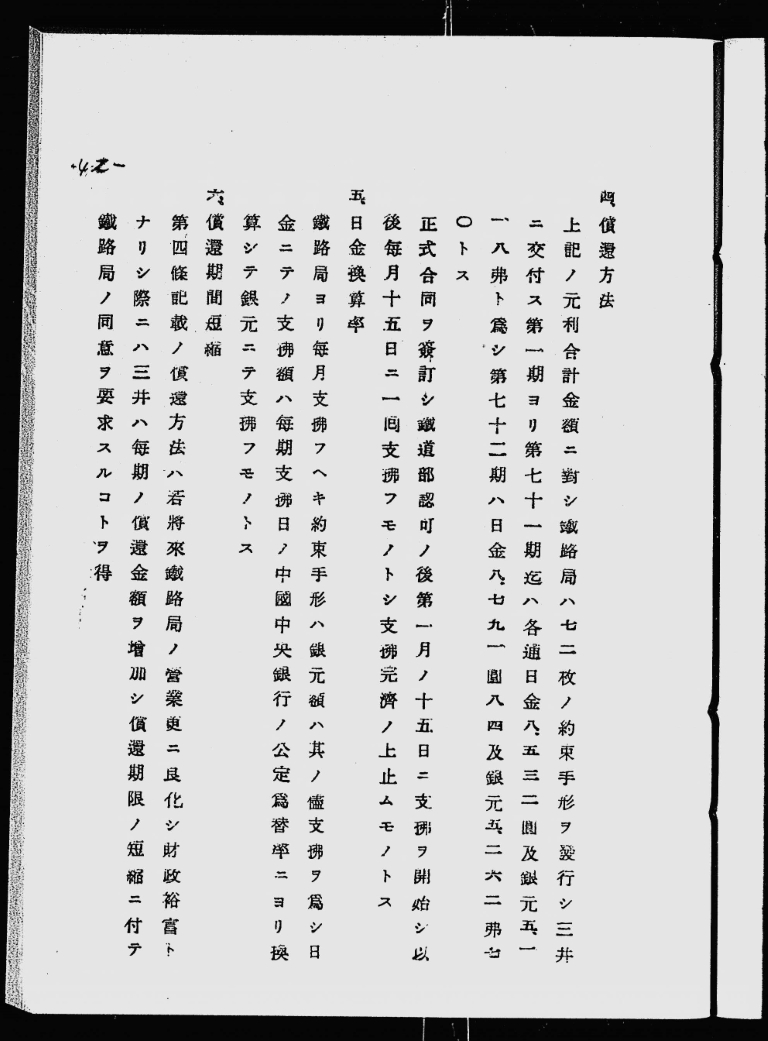 四、償還方法
上記ノ元利合計金額ニ對シ鐵路局ハ七二枚ノ約束手形ヲ發行シ三井
ニ交付ス第一期ヨリ第七十一期迄ハ各通日金八、五三二圓及銀元五、一
一、八弗ト爲シ第七十二期ハ日金八、七九一圓八四及銀元五、二六二弗七
〇トス
正式合同ヲ簽訂シ鐵道部認可ノ後第一月ノ十五日ニ支拂ヲ開始シ以
後每月十五日ニ一回支拂フモノトシ支拂完濟ノ上止ムモノトス
五、日金換算率
鐵路局ヨリ每月支拂フヘキ約束手形ハ銀元額ハ其ノ儘支拂ヲ爲シ日
金ニテノ支拂額ハ每期支拂日ノ中國中央銀行ノ公定爲替率ニヨリ換
算シテ銀元ニテ支拂フモノトス
六、償還期間短縮
第四條記載ノ償還方法ハ若將來鐵路局ノ營業更ニ良化シ財政裕富ト
ナリシ際ニハ三井ハ每期ノ償還金額ヲ增加シ償還期限ノ短縮ニ付テ
鐵路局ノ同意ヲ要求スルコトヲ得